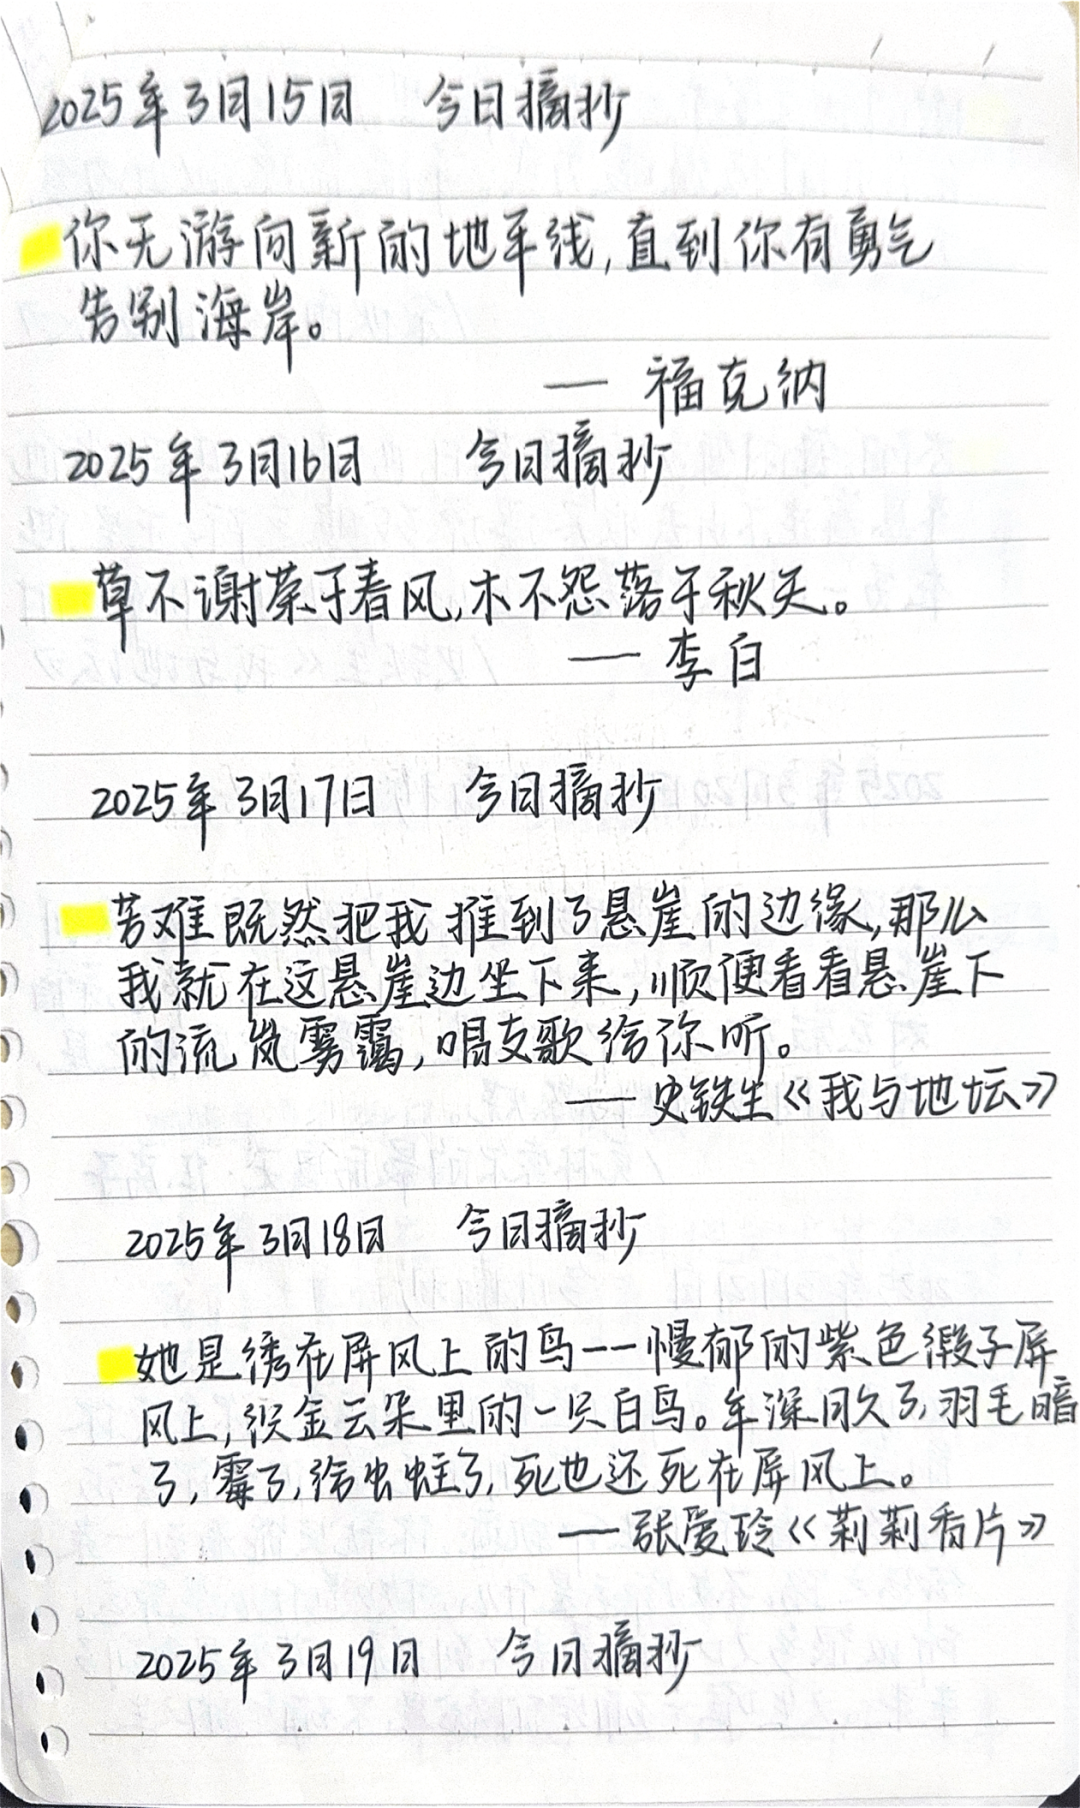 2025年3月15日 今日摘抄
你无游向新的地平线,直到你有勇气
告别海岸。
— 福克纳
2025年3月16日 今日摘抄
草不谢荣于春风,木不怨落于秋天。
— 李白
2025年3月17日 今日摘抄
苦难既然把我推到了悬崖的边缘,那么
我就在这悬崖边坐下来,顺便看看悬崖下
的流岚雾霭,唱支歌给你听。
— 史铁生《我与地坛》
2025年3月18日 今日摘抄
她是绣在屏风上的鸟——悒郁的紫色缎子屏
风上,织金云朵里的一只白鸟。年深日久了,羽毛暗
了,霉了,给虫蛀了,死也还死在屏风上。
— 张爱玲《茉莉香片》
2025年3月19日 今日摘抄